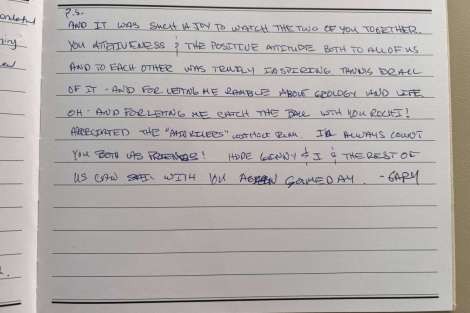 onderful
P.S.
AND IT WAS SUCH A JOY TO WATCH THE TWO OF YOU TOGETHER.
YOU ATTIVENESS & THE POSITIVE ATTITUDE BOTH TO ALL OF US
AND TO EACH OTHER WAS TRUELY INSPIRING THANKS FOR ALL
OF IT - AND FOR LETTING ME RAMBLE ABOUT GEOLOGY AND LIFE
OH - AND FOR LETTING ME CATCH THE BALL WITH YOU
APPRECIATED THE I'LL ALWAYS COUNT
YOU BOTH AS FRIENDS! HOPE & I & THE REST OF
US CAN SAIL WITH YOU AGAIN SOMEDAY. -GARY